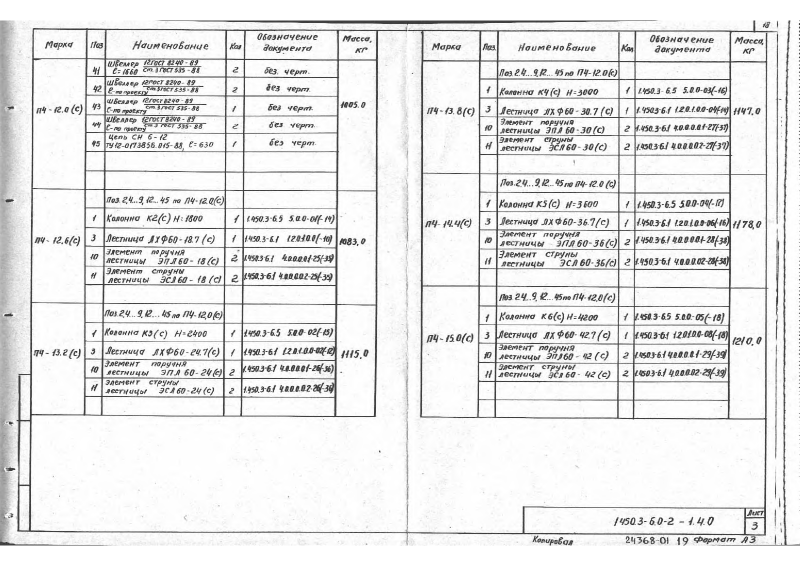 18
Марка Поз Наименование Кол Обозначение документа Масса, кг
П4-12.0(с) 1005.0
41 Швеллер 12ГОСТ 8240-89 ℓ=1860 ст.3 ГОСТ 535-88 2 без черт.
42 Швеллер 12ГОСТ 8240-89 ℓ-по проекту ст.3 ГОСТ 535-88 2 без черт.
43 Швеллер 12ГОСТ 8240-89 ℓ-по проекту ст.3 ГОСТ 535-88 1 без черт.
44 Швеллер 12ГОСТ 8240-89 ℓ-по проекту ст.3 ГОСТ 535-88 2 без черт.
45 Цепь СН 6-12 ТУ12-0173856.015-88, ℓ=630 1 без черт.
П4-12,6(с) 1083,0
Поз.2,4...9,12...45 по П4-12.0(с)
1 Колонна К2(с) Н=1800 1 1.450.3-6.5 5.0.0-01(-14)
3 Лестница ЛХФ60-18.7(с) 1 1.450.3-6.1 1.2.0.1.0.0(-10)
10 Элемент поручня лестницы ЭПЛ60-18(с) 2 1.450.3-6.1 4.0.0.0.01-25(-35)
11 Элемент струны лестницы ЭСЛ60-18(с) 2 1.450.3-6.1 4.0.0.0.02-25(-35)
П4-13.2(с) 1115,0
Поз.2,4...9,12...45 по П4-12.0(с)
1 Колонна К3(с) Н=2400 1 1.450.3-6.5 5.0.0-02(-15)
3 Лестница ЛХФ60-24.7(с) 1 1.450.3-6.1 1.2.0.1.0.0-02(-12)
10 Элемент поручня лестницы ЭПЛ60-24(с) 2 1.450.3-6.1 4.0.0.0.01-26(-36)
11 Элемент струны лестницы ЭСЛ60-24(с) 2 1.450.3-6.1 4.0.0.0.02-26(-36)
Марка Поз. Наименование Кол Обозначение документа Масса, кг
П4-13.8(с) 1147.0
Поз.2,4...9,12...45 по П4-12.0(с)
1 Колонна К4(с) Н=3000 1 1.450.3-6.5 5.0.0-03(-16)
3 Лестница ЛХФ60-30.7(с) 1 1.450.3-6.1 1.2.0.1.0.0-04(-14)
10 Элемент поручня лестницы ЭПЛ60-30(с) 2 1.450.3-6.1 4.0.0.0.01-27(-37)
11 Элемент струны лестницы ЭСЛ60-30(с) 2 1.450.3-6.1 4.0.0.0.02-27(-37)
П4-14.4(с) 1178,0
Поз.2,4...9,12...45 по П4-12.0(с)
1 Колонна К5(с) Н=3600 1 1.450.3-6.5 5.0.0-04(-17)
3 Лестница ЛХФ60-36.7(с) 1 1.450.3-6.1 1.2.0.1.0.0-06(-16)
10 Элемент поручня лестницы ЭПЛ60-36(с) 2 1.450.3-6.1 4.0.0.0.01-28(-38)
11 Элемент струны лестницы ЭСЛ60-36(с) 2 1.450.3-6.1 4.0.0.0.02-28(-38)
П4-15.0(с) 1210,0
Поз.2,4...9,12...45 по П4-12.0(с)
1 Колонна К6(с) Н=4200 1 1.450.3-6.5 5.0.0-05(-18)
3 Лестница ЛХФ60-42.7(с) 1 1.450.3-6.1 1.2.0.1.0.0-08(-18)
10 Элемент поручня лестницы ЭПЛ60-42(с) 2 1.450.3-6.1 4.0.0.0.01-29(-39)
11 Элемент струны лестницы ЭСЛ60-42(с) 2 1.450.3-6.1 4.0.0.0.02-29(-39)
1.450.3-6.0-2-1.4.0
Лист
3
Копировал 24368-01 19 Формат А3